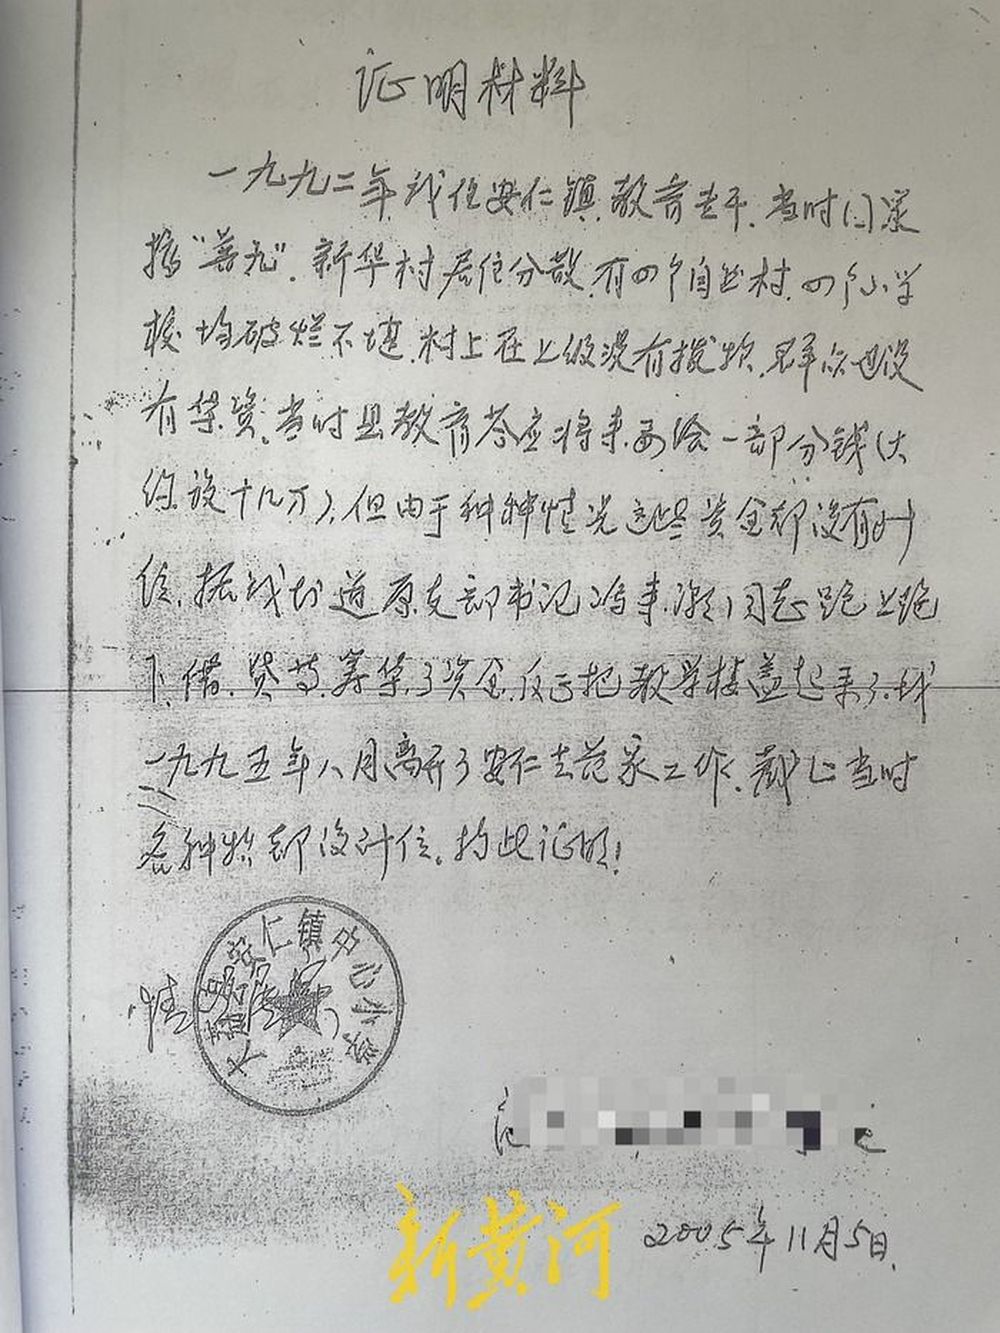 证明材料
一九九二年我任安仁镇教育专干，当时门采
接“普九”，新华村居住分散，有四个自然村，四个小学
校均破烂不堪，村上在上级没有拨款，群众也没
有集资。当时县教育答应将来要给一部分钱（大
约说十几万），但由于种种情况这些资金却没有到
位，据我知道原支部书记冯来潮同志跑上跑
下，借、贷苦筹集了资金，反正把教学楼盖起来了。我
一九九五年八月离开了安仁去范家工作，截止当时
各种款都没到位。特此证明！
情况属实
安仁镇中心小学
新黄河
2005年11月5日